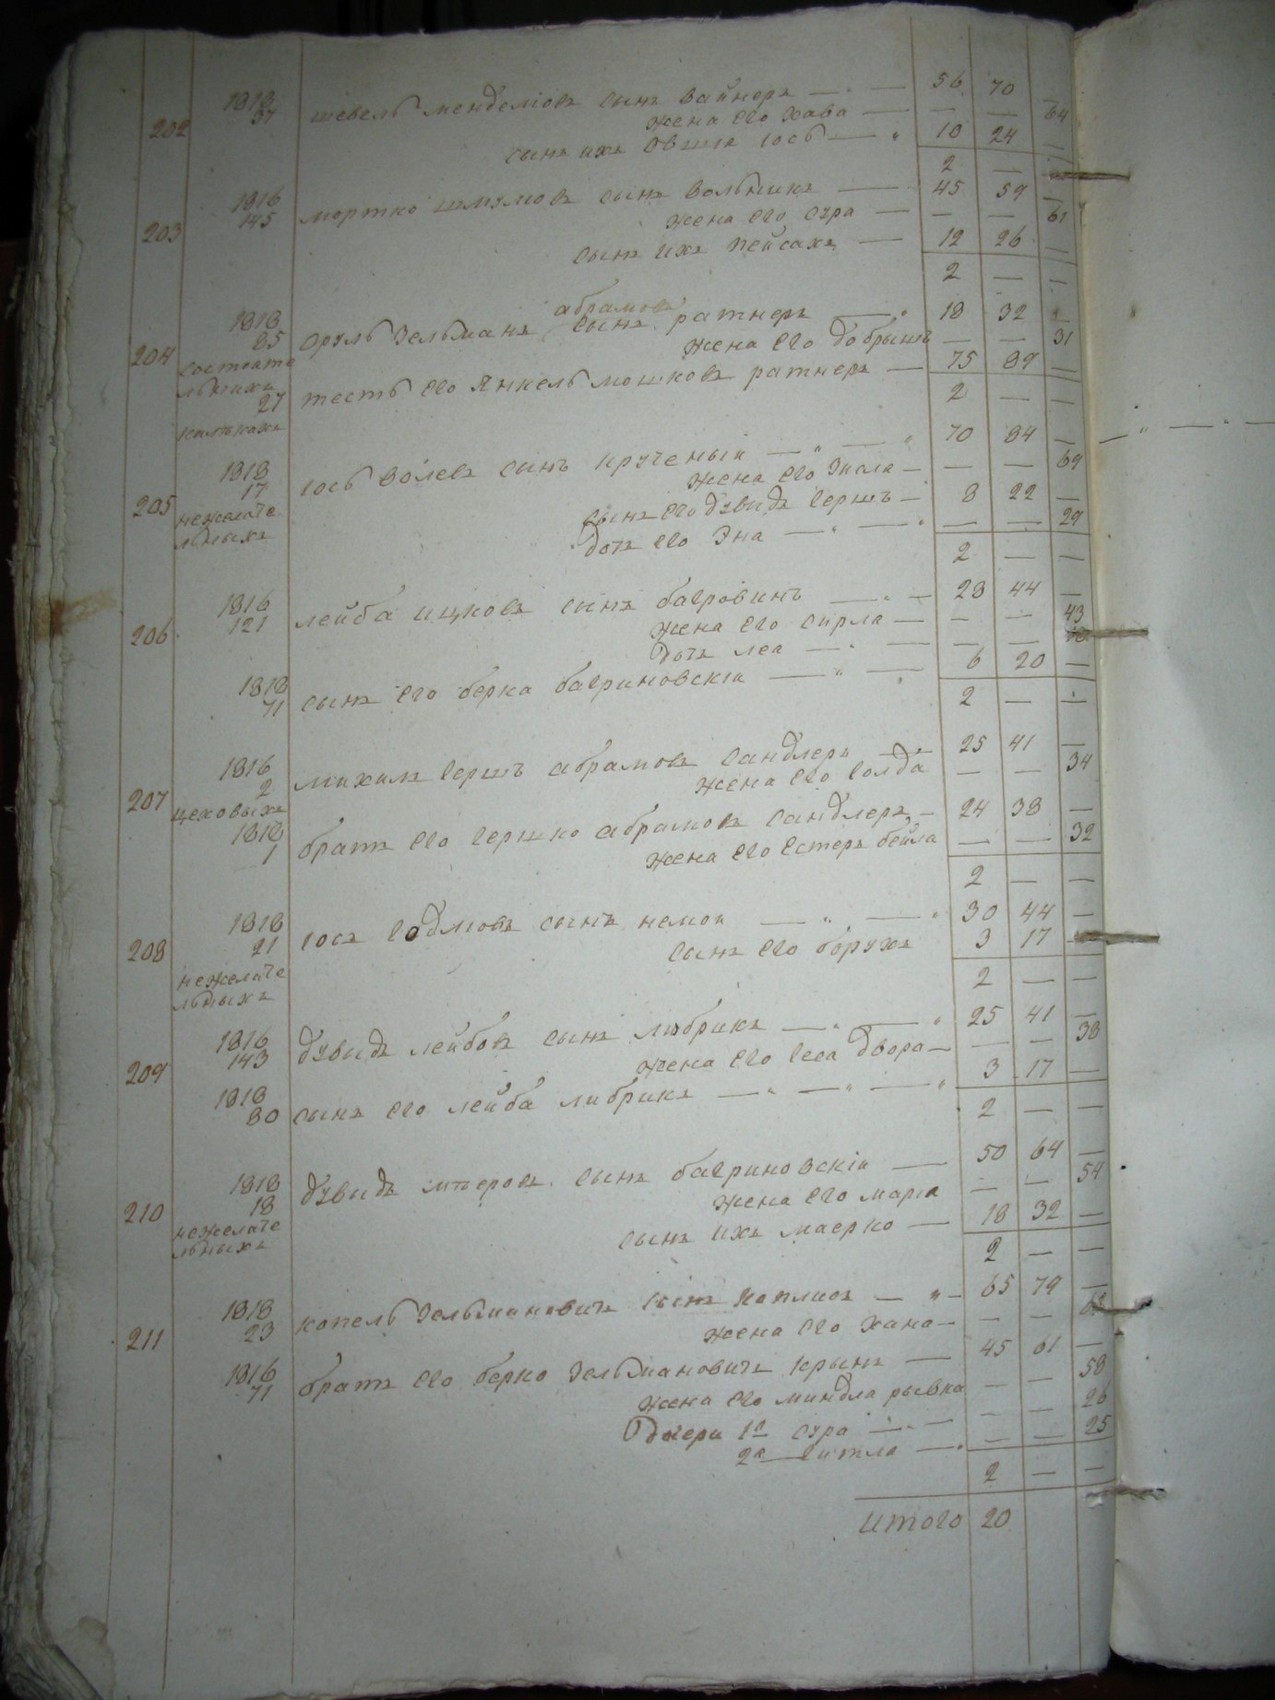 202 1818 37 шевель менделіовъ сынъ вайнеръ — 56 70 —
жена его хава — — — 64
сынъ ихъ овшія іосъ — 10 24 —
2 — —
203 1816 145 мортко шмуловъ сынъ вольникъ — 45 59 —
жена его сура — — — 61
сынъ ихъ пейсахъ — 12 26 —
2 — —
абрамовъ
204 1818 85 сруль зельманъ сынъ ратнеръ — 18 32 —
состоате
жена его добрышъ — — 31
льныхъ
27 тесть его янкель мошковъ ратнеръ — 75 89 —
2 — —
калѣкахъ
205 1818 17 іось волевъ сынъ крученыи — 70 84 —
нежелате
льныхъ
жена его — — — 69
сынъ его дувидъ гершъ — 8 22 —
дочъ его эна — — — 29
2 — —
206 1816 121 лейба ицковъ сынъ багровинъ — 28 44 —
жена его сирла — — — 43
дочъ леа — — —
1818 71 сынъ его берка багриновскіи — 6 20 —
2 — —
207 1816 2 михилъ гершъ абрамовъ сандлеръ — 25 41 —
цеховыхъ
жена его голда — — 34
1818 1 братъ его гершко абрамовъ сандлеръ — 24 38 —
жена его естеръ бейла — — 32
2 — —
208 1818 21 іосъ годлювъ сынъ немои — 30 44 —
нежелате
льныхъ
сынъ его борухъ 3 17 —
2 — —
209 1816 143 дувидъ лейбовъ сынъ либрикъ — 25 41 —
жена его геса двора — — — 38
1818 80 сынъ его лейба либрикъ — 3 17 —
2 — —
210 1818 18 дувидъ мѣеровъ сынъ багриновскіи — 50 64 —
нежелате
льныхъ
жена его маріа — — 54
сынъ ихъ маерко — 18 32 —
2 — —
211 1818 23 копель зельмановичъ сынъ каплиоъ — 65 79 —
жена его хана — — —
1816 71 братъ его берко зельмановичъ крынъ — 45 61 —
жена его миндла рывка — — 58
дочери 1я сура — — — 26
2я гитла — — — 25
2 — —
итого 20